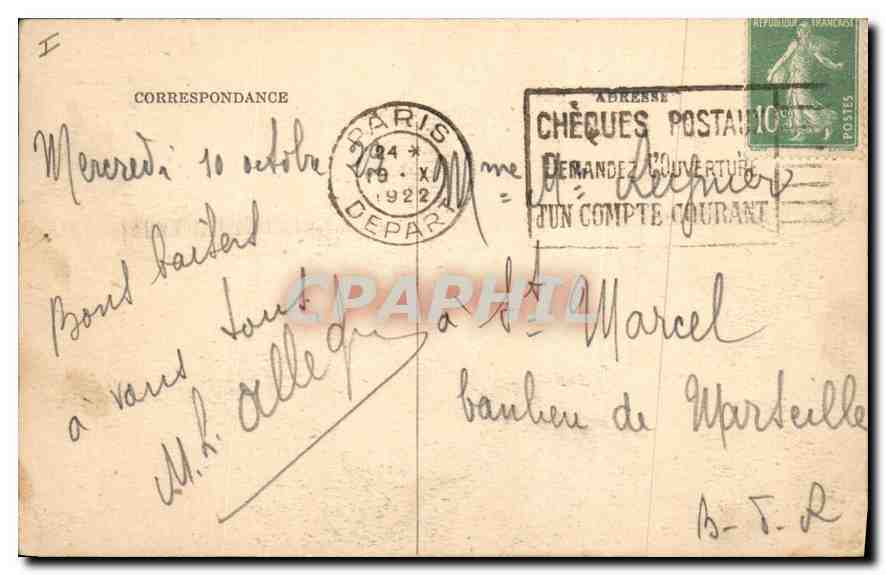 I
CORRESPONDANCE
Mercredi 10 octobre
Bons baisers
à vous tous
M. L.
PARIS
24 *
19 · X
1922
DEPART
ADRESSE
CHÈQUES POSTAUX
DEMANDEZ L'OUVERTURE
D'UN COMPTE COURANT
RÉPUBLIQUE FRANÇAISE
10c
POSTES
Mme
à St Marcel
banlieu de Marseille
B-d-R
CPAPHIL